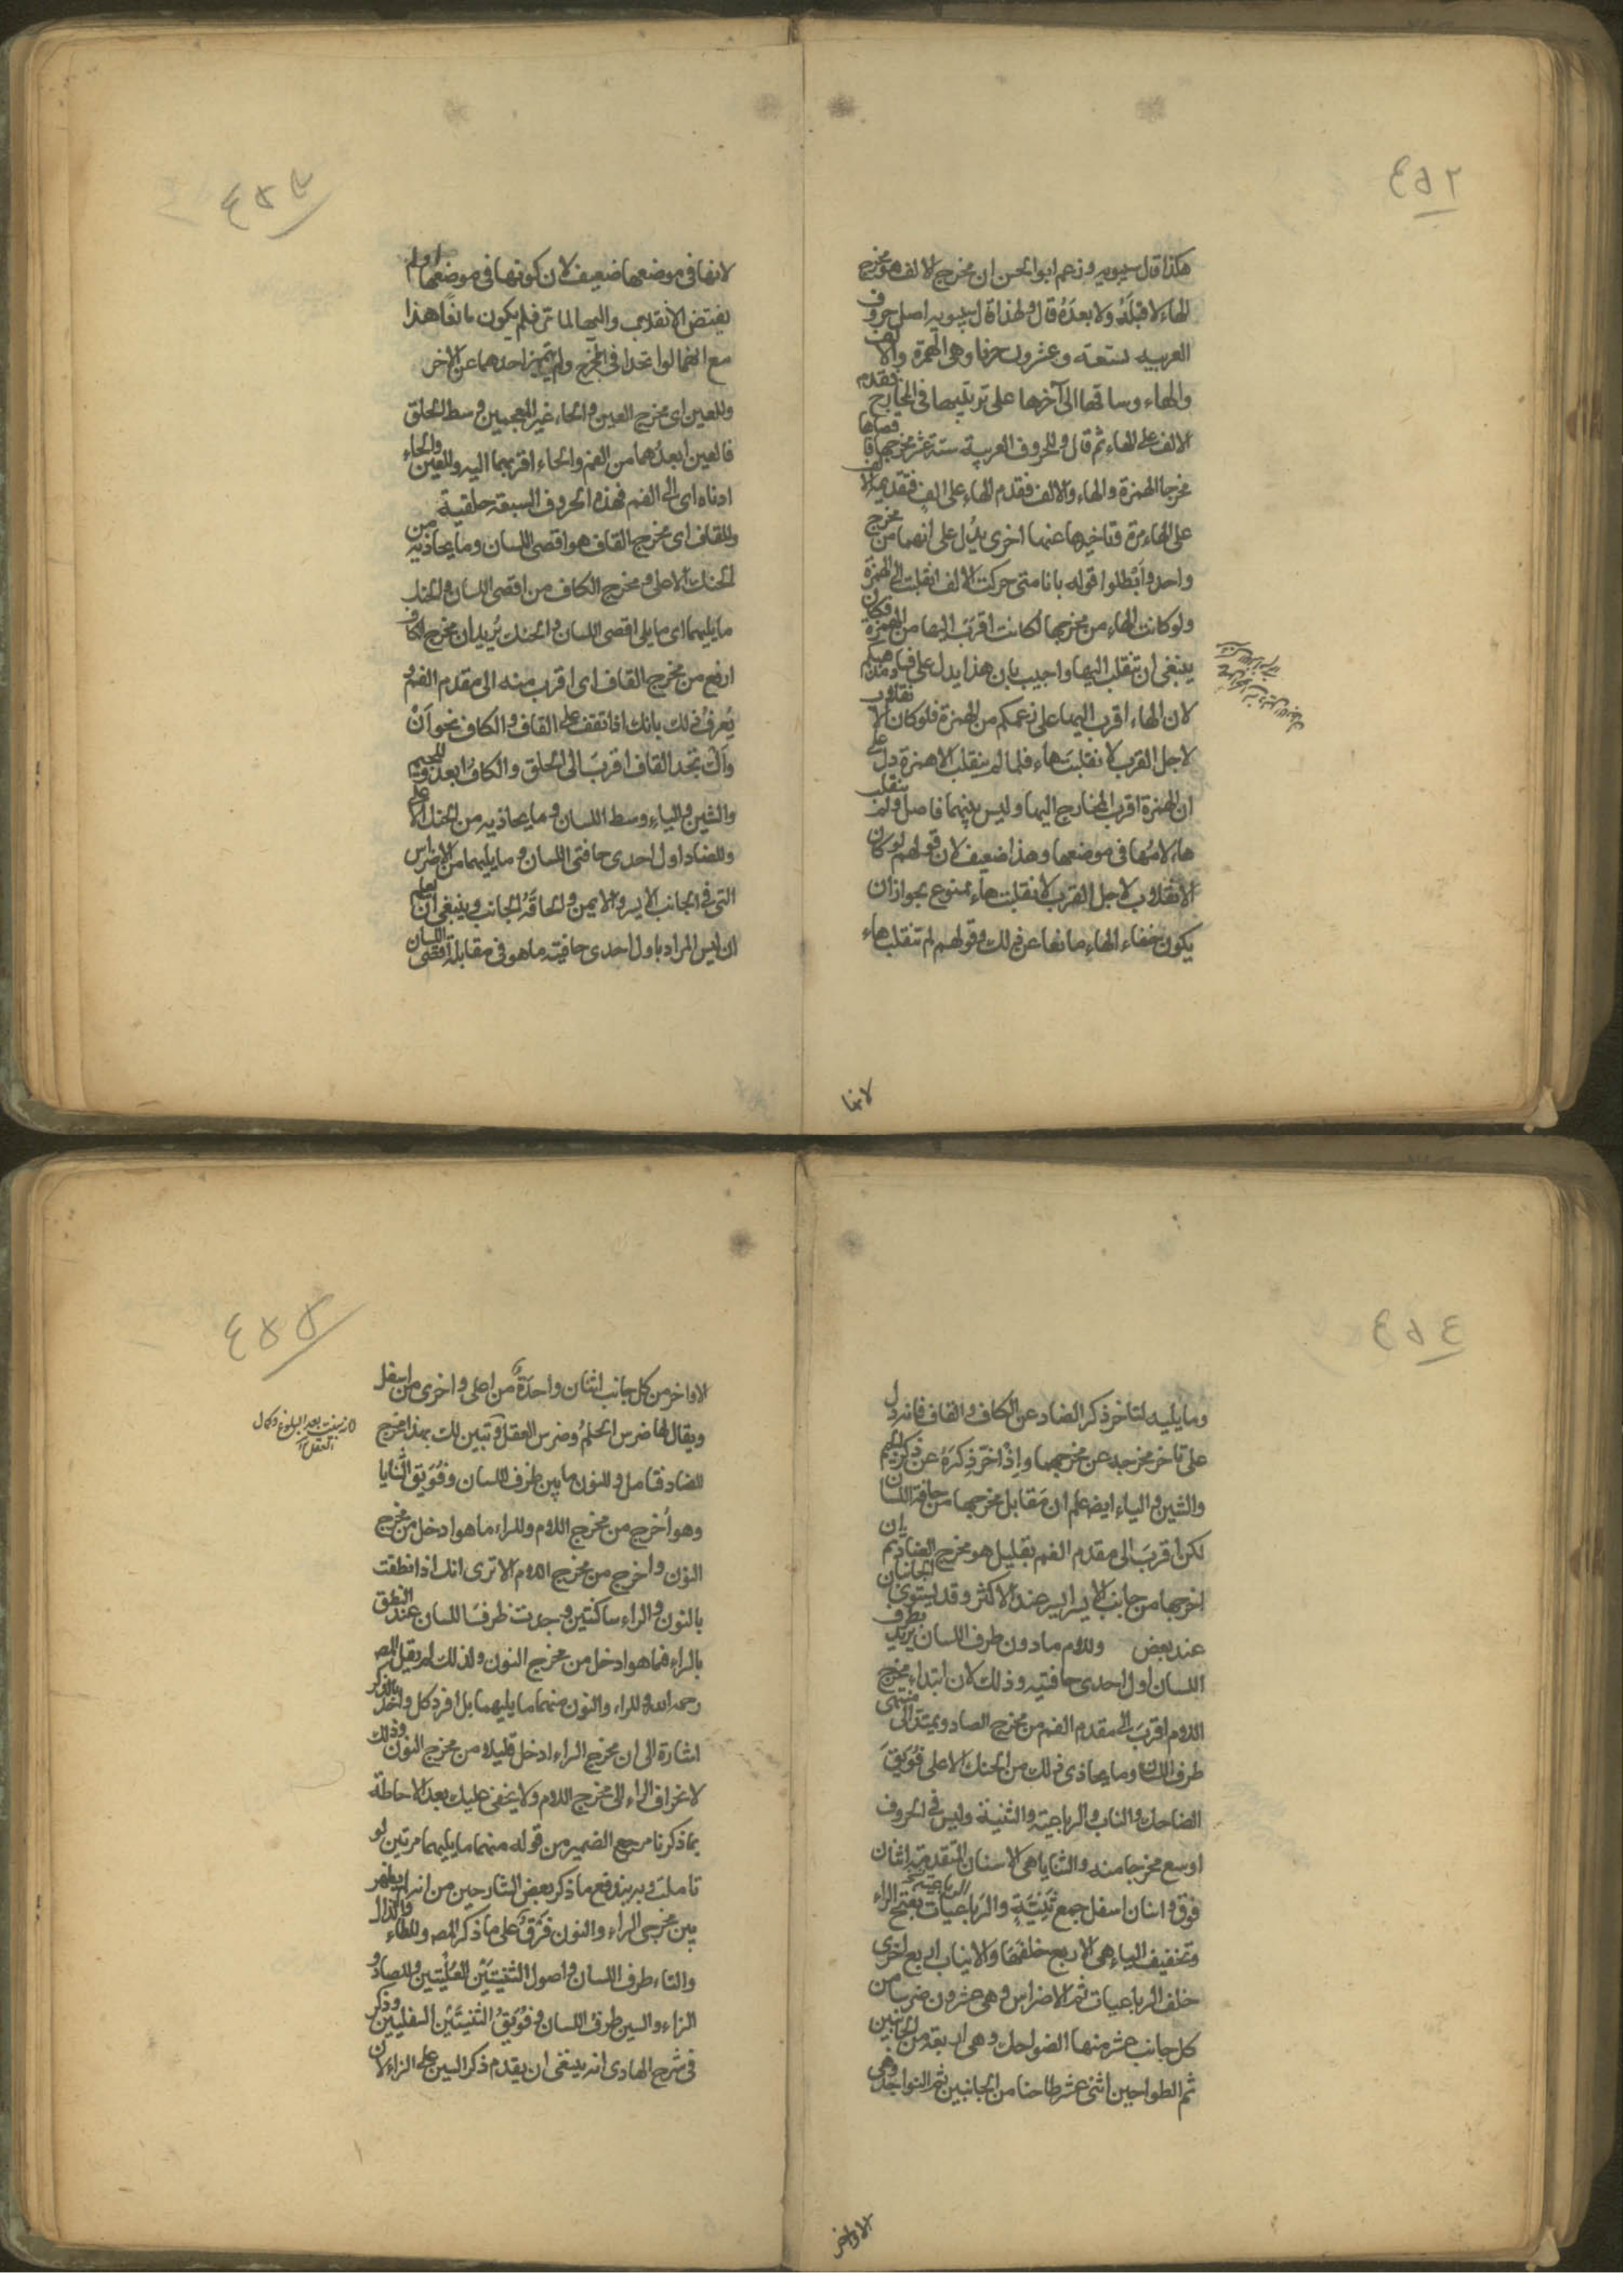 ٤٥٢
هكذا قال سيبويه وزعم ابو الحسن ان مخرج الالف هو مخرج
الهاء لا قبلَهُ ولا بعدَهُ قال ولهذا قال سيبويه اصل حروف
العربيه تسعة وعشرون حرفا وهي الهمزة والالف
والهاء وساقها الى آخرها على ترتيبها في المخارج فقدم
الالف على الهاء ثم قال وللحروف العربية ستة عشر مخرجا فاقصاها
مخرجا الهمزة والهاء والالف فقدم الهاء على الالف فتقديمه الالف
على الهاء مرة وتاخيرها عنها اخرى يدُل على انهما من مخرج
واحد وَابْطلوا قوله بانا متى حركت الالف انقلبت الى الهمزة
ولو كانت الهاء من مخرجها لكانت اقربَ اليها من الهمزة فكان
ينبغي ان تنقلب اليها واجيب بان هذا يدل على فساد مذهبكم
لان الهاء اقرب اليها على زعمكم من الهمزة فلو كان الانقلاب
لاجل القرب لانقلبت هاء فلما لم ينقلب الا همزة دل على
ان الهمزة اقرب المخارج اليها وليس بينهما فاصل ولم تنقلب
هاء لامنها في موضعها وهذا ضعيف لان قولهم لو كان
الانقلاب لاجل القرب لانقلبت هاء ممنوع بجواز ان
يكون خفاء الهاء مانعا عن ذلك وقولهم لم تنقلب هاء
لانها
٤٥٣
لانها في موضعها ضعيف لان كونها في موضعها او لم
يقتض الانقلاب واليها لما مر فلم يكون مانعًا هذا
مع انهما لو اتحدا في المخرج ولم يتميز احدهما عن الاخر
وللعين اى مخرج العين والحاء غير المعجمين وسط الحلق
فالعين ابعدُهما من الفم والحاء اقربهما اليه وللغين والخاء
ادناه اى الى الفم فهذه الحروف السبعة حلقية
وللقاف اى مخرج القاف هو اقصى اللسان وما يحاذيه من
الحنك الاعلى ومخرج الكاف من اقصى اللسان والحنك
ما يليهما اى ما يلى اقصى اللسان والحنك يُريد ان مخرج الكاف
ارفع من مخرج القاف اى اقرب منه الى مقدم الفم و
يُعرفُ ذلك بانك اذا تقف على القاف والكاف نحو اَقْ
واَكْ تجد القاف اقربَ الى الحلق والكاف ابعدَ وللجيم
والشين والياء وسط اللسان وما يحاذيه من الحنك الاعلى
وللضاد اول احدى حافتى اللسان وما يليهما من الاضراس
التى في الجانب الايسر والايمن والحافَةُ الجانب وينبغى ان تعلم
ان ليس المراد باول احدى حافتيه ما هو في مقابلة اقصى اللسان
٤٥٤
وما يليه لتاخر ذكر الضاد عن الكاف والقاف فانه دل
على تاخر مخرجه عن مخرجهما وَاِذْ اخّر ذِكرَهُ عن ذكر الجيم
والشين والياء ايضا علم ان مَقابل مخرجها من حافة اللسان
لكن اقربَ الى مقدم الفم بقليل هو مخرج الضاد ثم ان
اخرجها من جانب الايسر ايسر عند الاكثر وقد يستوى الجانبان
عند بعض وللام ما دون طرف اللسان يريد بطرف
اللسان اول احدى حافتيه وذلك لان ابتداء مخرج
اللام اقربَ الى مقدم الفم من مخرج الضاد ويمتد الى منتهى
طرف اللسان وما يحاذى ذلك من الحنك الاعلى فُوَيقَ
الضاحك والناب والرباعية والثنية وليس في الحروف
اوسع مخرجا منه والثنايا هي الاسنان المتقدمة اثنان
فوق واثنان اسفل جمع ثَنِيَّةٍ والرَباعيات بفتح الراء
وتخفيف الياء هي الاربع خلفَها والانياب اربع اخرى
خلف الرباعيات ثم الاضراس وهي عشرون ضرسا من
كل جانب عشر منها الضواحك وهي اربعة من الجانبين
ثم الطواحين اثنى عشر طاحنا من الجانبين ثم النواجذ وهي
الاواخر
٤٥٥
الاواخر من كل جانب اثنان واحدةٌ من اعلى واخرى من اسفل
ويقال لها ضرس الحلم وضرس العقل وتبين لك بهذا مخرج
لانه ينبت بعد البلوغ وكمال
العقل
للضاد فتامل وللنون ما بين طرف اللسان وفُوَيق الثنايا
وهو اُخرج من مخرج اللام وللراء ما هو ادخل من مخرج
النون واخرج من مخرج اللام الا ترى انك اذا نطقت
بالنون والراء ساكنتين وجدت طرفَ اللسان عند النطق
بالراء فيما هو ادخل من مخرج النون ولذلك لم يقل المص
رحمه الله وللراء والنون منهما ما يليهما بل افرد كل واحد بالذكر
اشارة الى ان مخرج الراء ادخل قليلا من مخرج النون وذلك
لانحراف الراء الى مخرج اللام ولا يخفى عليك بعد الاحاطة
بما ذكرنا مرجع الضمير من قوله منهما ما يليهما مرتين لو
تاملت وبه يندفع ما ذكر بعض الشارحين من انه لم يظهر
بين مخرجى الراء والنون فَرقٌ على ما ذكر المص وللطاء والدال
والتاء طرف اللسان واصول الثنيتَيْن العُليَتين وللصاد و
الزاء والسين طرف اللسان وفُوَيقُ الثنيتَيْن السفليين وذكر
فى شرح الهادى انه ينبغى ان يقدم ذكر السين على الزاء لان